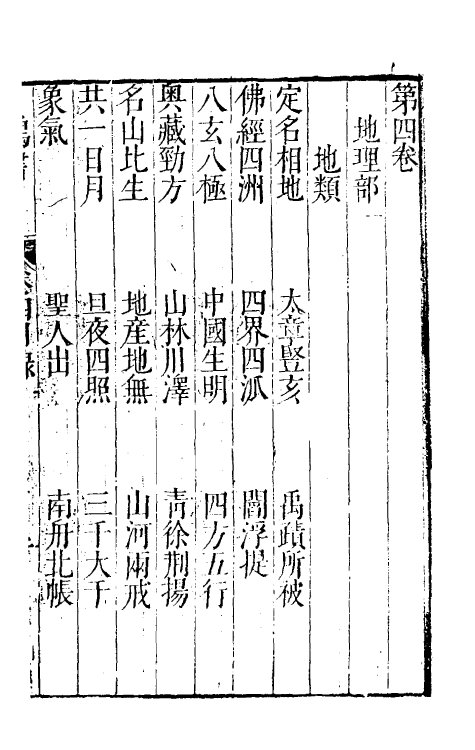 第四卷
地理部
地類
定名相地 太章豎亥 禹蹟所被
佛經四洲 四界四泒 閻浮提
八玄八極 中國生明 四方五行
奧藏勁方 山林川澤 青徐荆揚
名山比生 地産地無 山河兩戒
共一日月 旦夜四照 三千大千
象氣 聖人出 南冊北帳